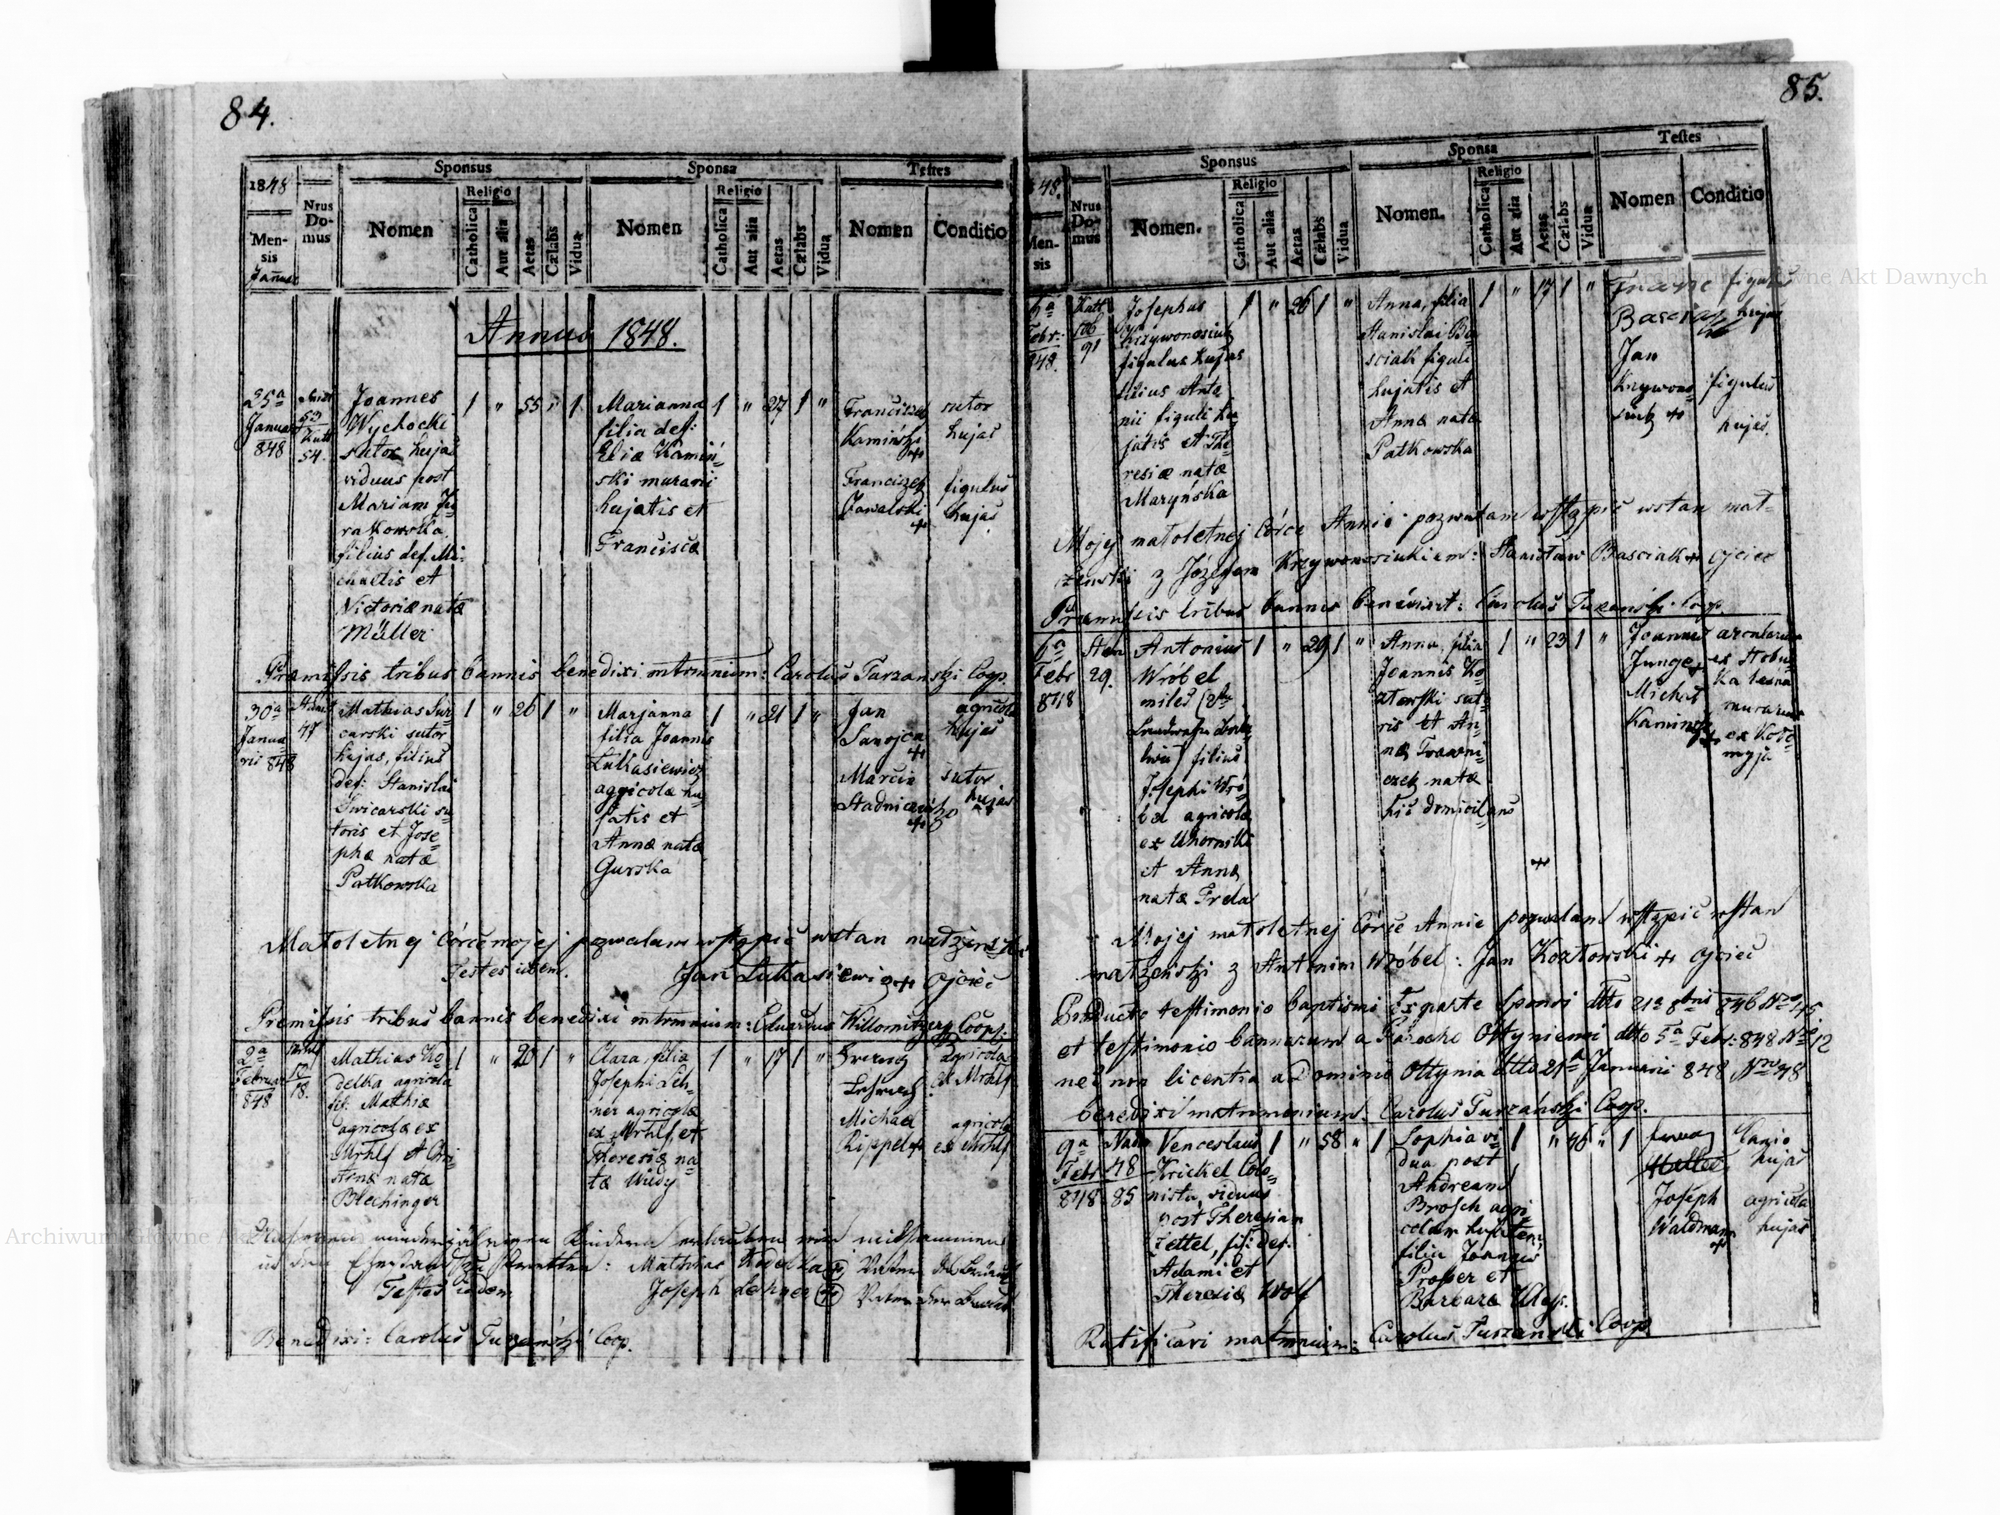 84.
Sponsus
Sponsa
Testes
1848
Mensis
Januar
Nrus Domus
Nomen
Religio
Catholica
Aut alia
Aetas
Cælabs
Vidua
Nomen
Religio
Catholica
Aut alia
Aetas
Cælabs
Vidua
Nomen
Conditio
Annus 1848.
25a
Januar
848
54.
Joannes
Wychocki
sutor hujas
viduus post
Mariam Ju-
ratkowska
filius def. Mi-
chaelis et
Victoriæ natæ
Müller
1 " 55 " 1
Marianna
filia def:
Eliæ Kamiń-
ski murarii
hujatis et
Franciscæ
1 " 27 1 "
Franciszek
Kamiński
+
Franciszek
Jawalski
+
sutor
hujas
figulus
hujas
Præmissis tribus bannis benedixi mtrmnium: Carolus Turzański Coop.
30a
Janua
rii 848
47
Mathias Swi-
carski sutor
hujas, filius
def: Stanislai
Swicarski su-
toris et Jose-
phæ natæ
Patkowska
1 " 26 1 "
Marjanna
filia Joannis
Łukasiewicz
agricolæ hu-
jatis et
Annæ natæ
Gurska
1 " 21 1 "
Jan
Sanojca
+
Marcin
Stadniczeńko
+
agricola
hujas
sutor
hujas
Małoletnej córce mojej pozwalam wstąpić w stan małżeński
Testes iidem. Jan Łukasiewicz + Ojciec
Premissis tribus bannis benedixi mtrmnium: Eduardus Willomitzer Coop.
2a
Februar
848
18.
Mathias Ko-
delka agricola
fil: Mathiæ
agricolæ ex
Mrhlf et Chri-
stinæ natæ
Blechinger
1 " 20 1 "
Clara, filia
Josephi Leh-
ner agricolæ
ex Mrhlf et
Theresiæ na-
tæ Wudy
1 " 17 1 "
Michael
Rippel +
agricola
ex Mrhlf
agricola
ex Mrhlf
minderjährigen Kindern erlauben wir
Ehestand zu tretten: Mathias Kodelka + Vater des
Testes iidem Joseph Lehner + Vater der Braut
Benedixi: Carolus Turzański Coop.
85.
Sponsus
Sponsa
Testes
848.
Mensis
Nrus Domus
Nomen.
Religio
Catholica
Aut alia
Aetas
Cælabs
Vidua
Nomen.
Religio
Catholica
Aut alia
Aetas
Cælabs
Vidua
Nomen
Conditio
6a
Febr:
848.
Kutt
106
91
Josephus
Krzywonosiuk
figulus hujas
filius Anto
nii figuli hu
jatis et The
resiæ natæ
Maryńska
1 " 26 1 "
Anna, filia
Stanislai Ba-
sciak figuli
hujatis et
Annæ natæ
Patkowska
1 " 17 1 "
Franc
Basciak
Jan
Krzywono-
siuk +
figulus
hujas
figulus
hujas.
Mojej małoletnej Córce Annie pozwalam wstąpić w stan mał-
żeński z Józefem Krzywonosiukiem: Stanisław Basciak + Ojciec
Præmissis tribus bannis benedixit: Carolus Turzański Coop.
6a
Febr
848
29.
Antonius
Wróbel
miles
filius
Josephi Wró-
bel agricolæ
ex Uhorniki
et Annæ
natæ Freda
1 " 29 1 "
Anna, filia
Joannis Ko-
złowski sut-
ris et An-
næ Trawni-
czek natæ
hic domicilians
1 " 23 1 "
Joannes
Junge +
Michał
Kaminski
+
murarius
ex Koło-
myja
+
Mojej małoletnej Córce Annie pozwalam wstąpić w stan
małżeński z Antonim Wróbel: Jan Kozłowski + Ojciec
Producto testimonio baptismi Ex parte sponsi dtto 21a 8bris 846 Nro 45.
et testimonio bannorum a Parocho Ottyniensi dtto 5a Febr: 848 Nro 12
nec non licentia a Dominio Ottynia dtto 21a Januarii 848 Nro 48
benedixi matrimonium. Carolus Turzański Coop.
9a
Febr
848
48
85
Venceslaus
Krickel Colo-
nista, viduus
post Theresiam
Zettel, fil: def:
Adami et
Theresiæ Wolf
1 " 58 " 1
Sophia vi-
dua post
Andream
Brosch agri-
colam hujatem,
filia Joannis
Prosser et
Barbaræ
1 " 46 " 1
Joseph
Waldmann
+
lanio
hujas
agricola
hujas
Ratificavi matrmnium: Carolus Turzański Coop
Archiwum Główne Akt Dawnych
Archiwum Główne Akt Dawnych